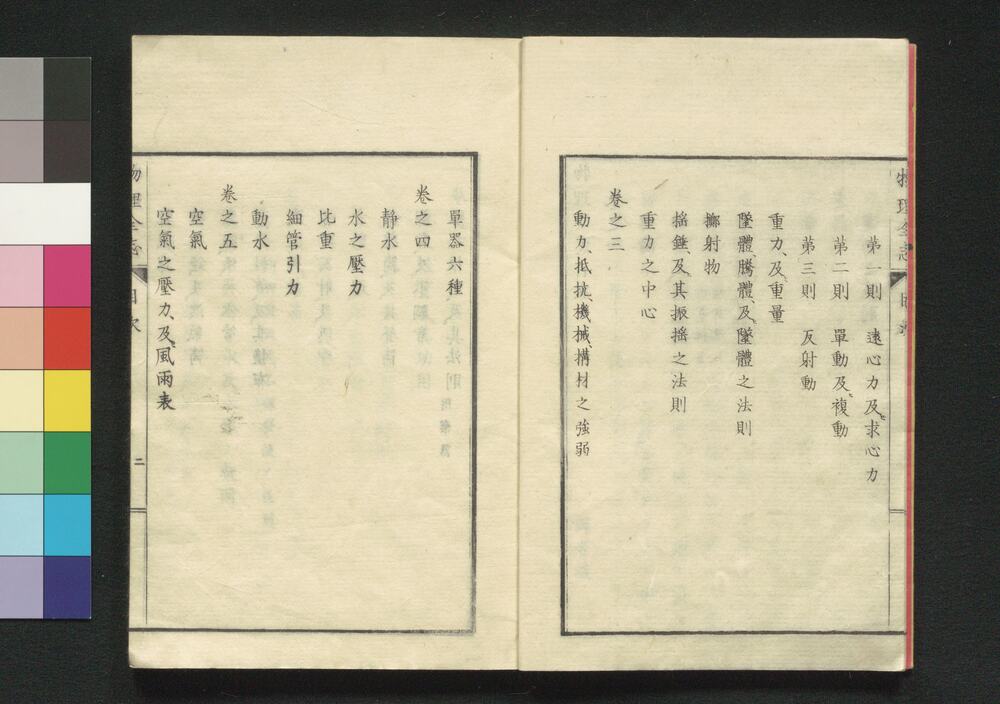 第一則 遠心力及ヒ求心力
第二則 單動及ヒ複動
第三則 反射動
重力、及ヒ重量
墜體、騰體、及ヒ墜體之法則
擲射物
搖錘、及ヒ其振搖之法則
重力之中心
卷之三
動力、抵抗、機械、構材之強弱
單器六種
卷之四
靜水
水之壓力
比重
細管引力
動水
卷之五
空氣
空氣之壓力、及ヒ風雨表
物理全志
目次
二